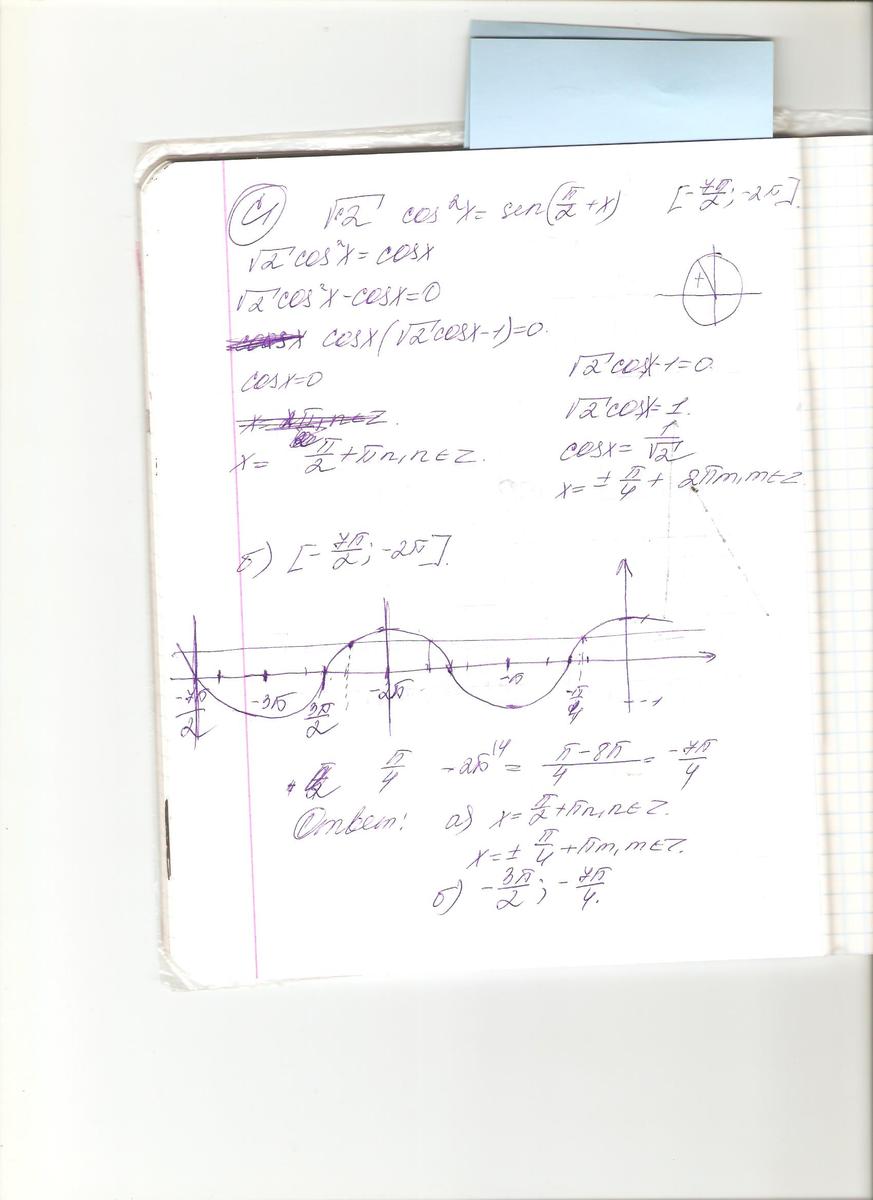 С1 √2 cos²x = sin(π/2 + x) [-7π/2; -2π].
√2 cos²x = cosx
√2 cos²x - cosx = 0
cosx(√2 cosx - 1) = 0.
cosx = 0
x = π/2 + πn, n∈Z.
√2 cosx - 1 = 0.
√2 cosx = 1.
cosx = 1/√2
x = ± π/4 + 2πm, m∈Z
б) [-7π/2; -2π].
-7π/2 -3π 3π/2 -2π -π -π/4 -1
π/4 - 2π^{\4} = (π - 8π)/4 = -7π/4
Ответ: а) x = π/2 + πn, n∈Z.
x = ± π/4 + πm, m∈Z.
б) -3π/2; -7π/4.